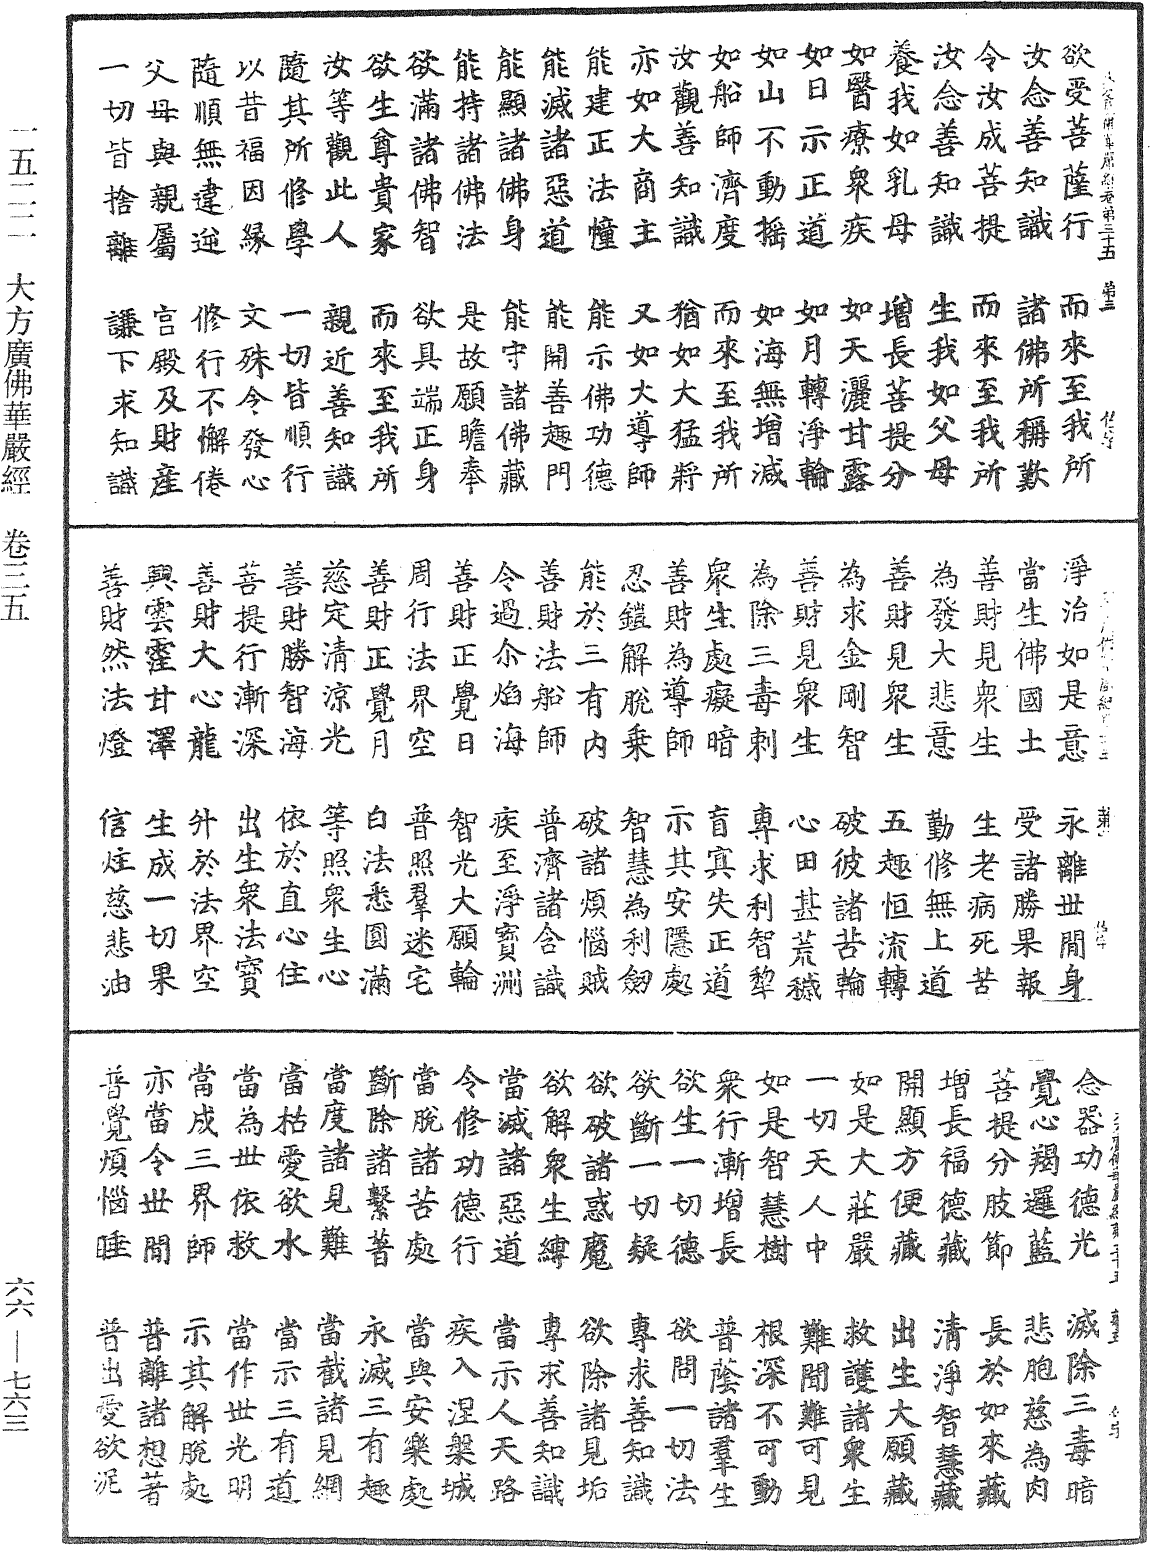 欲受菩薩行　而來至我所
汝念善知識　諸佛所稱歎
令汝成菩提　而來至我所
汝念善知識　生我如父母
養我如乳母　增長菩提分
如醫療衆疾　如天灑甘露
如日示正道　如月轉淨輪
如山不動搖　如海無增減
如船師濟度　而來至我所
汝觀善知識　猶如大猛將
亦如大商主　又如大導師
能建正法幢　能示佛功德
能滅諸惡道　能開善趣門
能顯諸佛身　能守諸佛藏
能持諸佛法　是故願瞻奉
欲滿諸佛智　欲具端正身
欲生尊貴家　而來至我所
汝等觀此人　親近善知識
隨其所修學　一切皆順行
以昔福因緣　文殊令發心
隨順無違逆　修行不懈倦
父母與親屬　宮殿及財產
一切皆捨離　謙下求知識
淨治如是意　永離世間身
當生佛國土　受諸勝果報
善財見衆生　生老病死苦
為發大悲意　勤修無上道
善財見衆生　五趣恒流轉
為求金剛智　破彼諸苦輪
善財見衆生　心田甚荒穢
為除三毒刺　專求利智犂
衆生處癡暗　盲冥失正道
善財為導師　示其安隱處
忍鎧解脫乘　智慧為利劒
能於三有內　破諸煩惱賊
善財法船師　普濟諸含識
令過尒焰海　疾至淨寶洲
善財正覺日　智光大願輪
周行法界空　普照羣迷宅
善財正覺月　白法悉圓滿
慈定清涼光　等照衆生心
善財勝智海　依於直心住
菩提行漸深　出生衆法寶
善財大心龍　升於法界空
興雲霔甘澤　生成一切果
善財然法燈　信炷慈悲油
念器功德光　滅除三毒暗
覺心羯邏藍　悲胞慈為肉
菩提分肢節　長於如來藏
增長福德藏　清淨智慧藏
開顯方便藏　出生大願藏
如是大莊嚴　救護諸衆生
一切天人中　難聞難可見
如是智慧樹　根深不可動
衆行漸增長　普蔭諸羣生
欲生一切德　欲問一切法
欲斷一切疑　專求善知識
欲破諸惑魔　欲除諸見垢
欲解衆生縛　專求善知識
當滅諸惡道　當示人天路
令修功德行　疾入涅槃城
當脫諸苦處　當與安樂處
斷除諸繫著　永滅三有趣
當度諸見難　當截諸見網
當枯愛欲水　當示三有道
當為世依救　當作世光明
當成三界師　示其解脫處
亦當令世間　普離諸想著
普覺煩惱睡　普出愛欲泥
一五二二　大方廣佛華嚴經　卷三五
六六—七六三